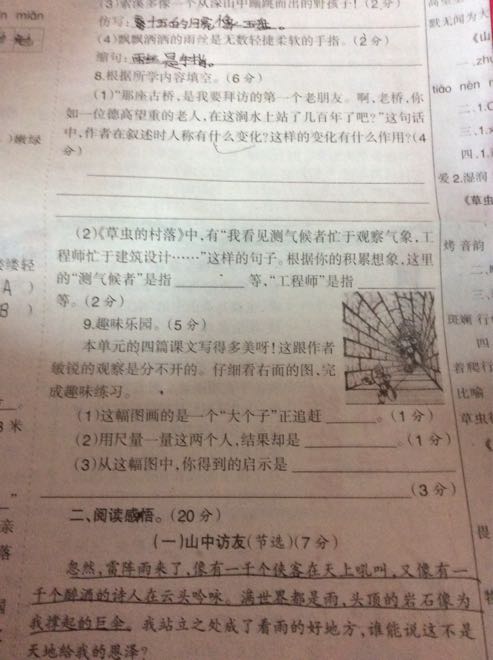 (3)索溪多像一个从深山中蹦跳而出的野孩子!(2分)
仿写:
(4)飘飘洒洒的雨丝是无数轻捷柔软的手指。(2分)
缩句:雨丝是手指。
8.根据所学内容填空。(6分)
(1)“那座古桥,是我要拜访的第一个老朋友。啊,老桥,你
如一位德高望重的老人,在这涧水上站了几百年了吧?”这句话
中,作者在叙述时人称有什么变化?这样的变化有什么作用?(4
分)
(2)《草虫的村落》中,有“我看见测气候者忙于观察气象,工
程师忙于建筑设计……”这样的句子。根据你的积累想象,这里
的“测气候者”是指________等,“工程师”是指________
等。(2分)
9.趣味乐园。(5分)
本单元的四篇课文写得多美呀!这跟作者
敏锐的观察是分不开的。仔细看右面的图,完
成趣味练习。
(1)这幅图画的是一个“大个子”正追赶________。(1分)
(2)用尺量一量这两个人,结果却是________。(1分)
(3)从这幅图中,你得到的启示是________
________(3分)
二、阅读感悟。(20分)
(一)山中访友(节选)(7分)
忽然,雷阵雨来了,像有一千个侠客在天上吼叫,又像有一
千个醉酒的诗人在云头吟咏。满世界都是雨,头顶的岩石像为
我撑起的巨伞。我站立之处成了看雨的好地方,谁能说这不是
天地给我的恩泽?
mián
)嫩绿
缕轻
A )
B )
米
亲
落
默无闻为大
《山
一、zhu
tiáo nèn
二、1.
三、1.
四、1.
爱 2.湿润
《草虫
烤 音韵
二、
三、
斑斓 行
四
着爬行
比喻
草虫
畏